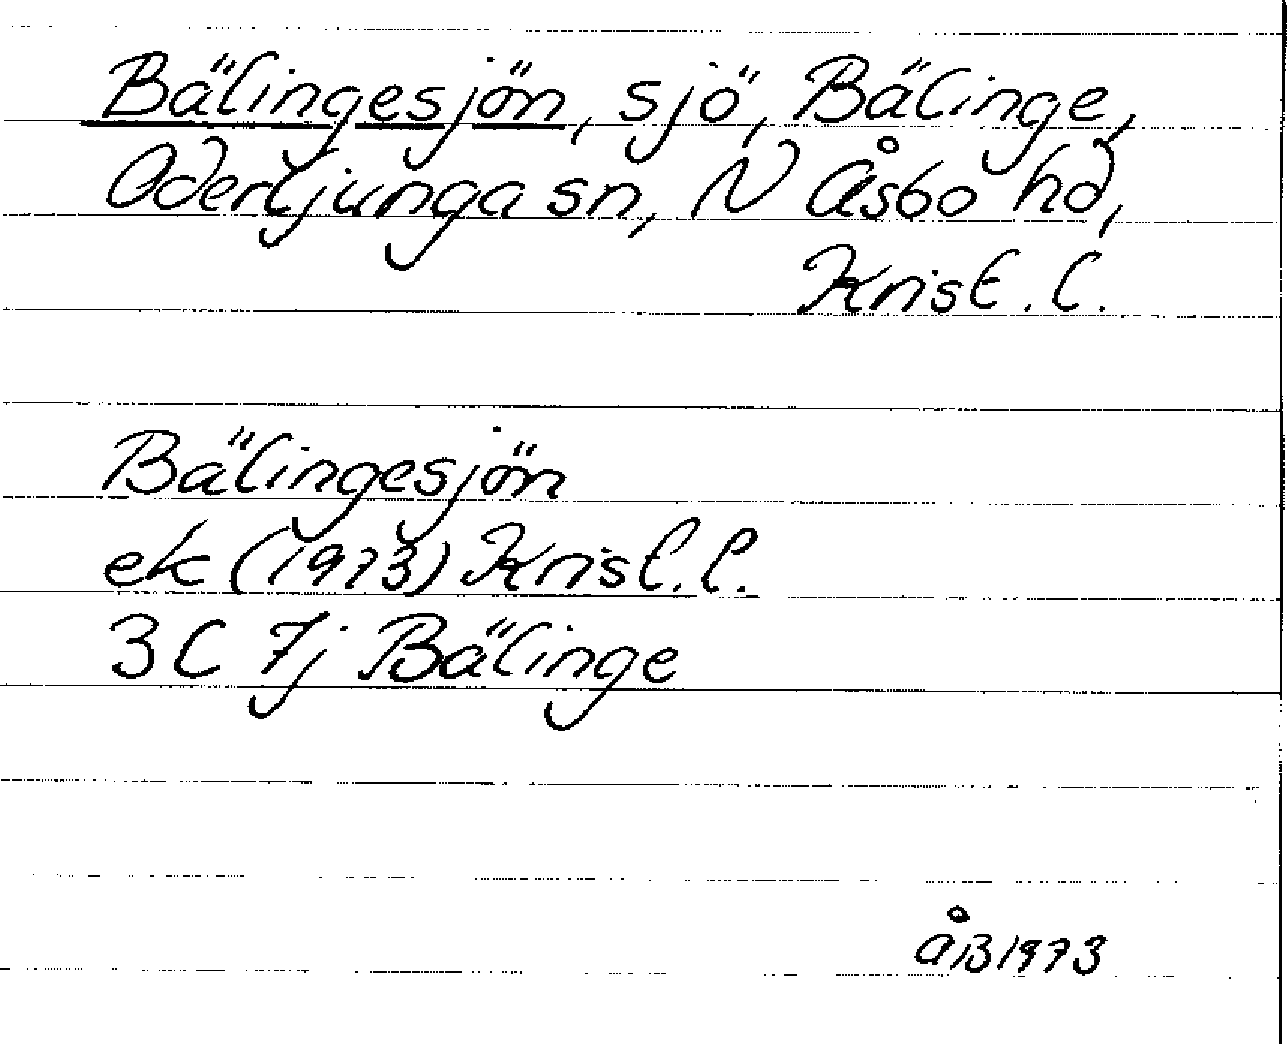 Bälingesjön, sjö, Bälinge,
Oderljunga sn, N Åsbo hd,
Krist. l.
Bälingesjön
ek (1973) Krist. l.
3C 7j Bälinge
ÅB 1973